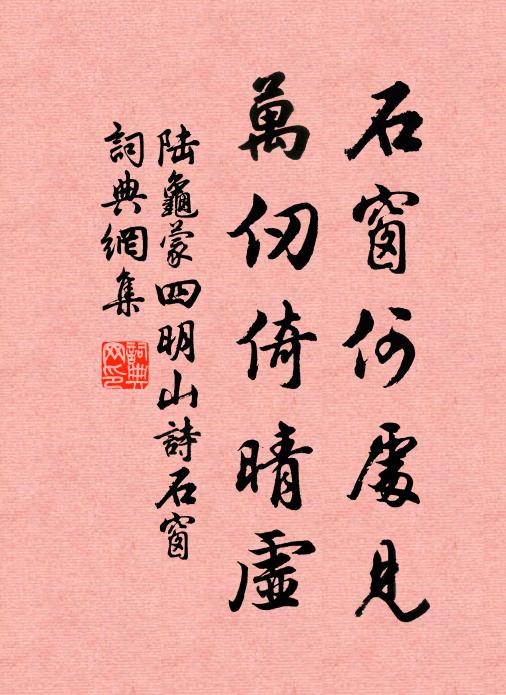 石窗何處見
萬仞倚晴虛
陆龜蒙四明山詩石窗
詞典網集
詞典网印